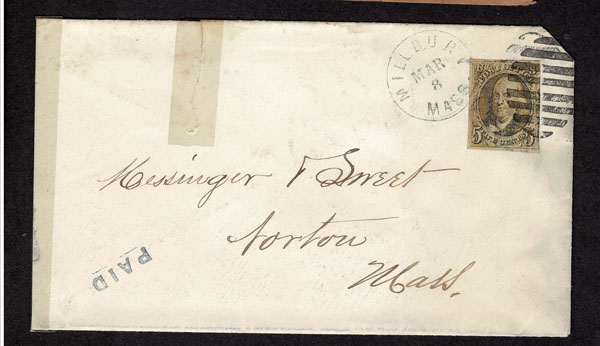 MILLBURY
MAR
8
MASS
POST OFFICE
5 5
FIVE CENTS
Messinger & Sweet
Norton
Mass.
PAID